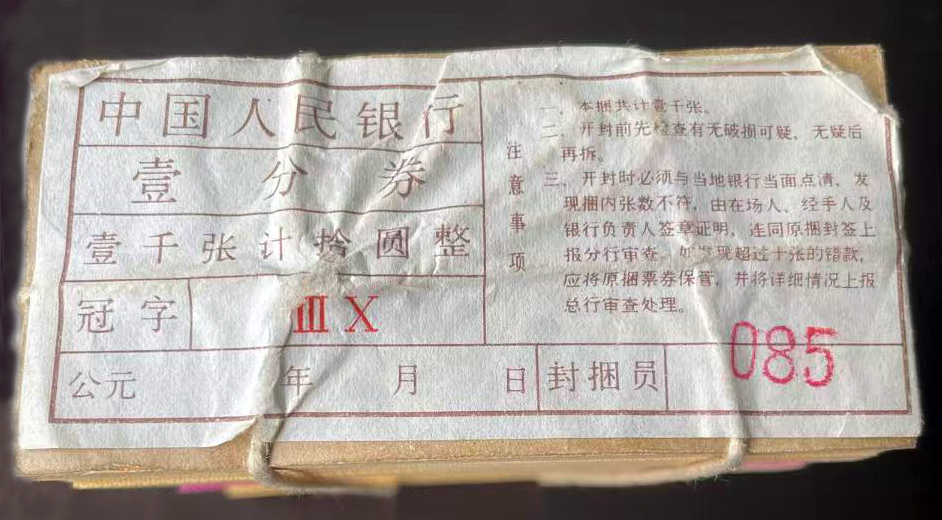 中国人民银行
壹分券
壹千张计拾圆整
冠字 ⅢⅩ
注意事项
一、本捆共计壹千张。
二、开封前先检查有无破损可疑，无疑后
再拆。
三、开封时必须与当地银行当面点清，发
现捆内张数不符，由在场人、经手人及
银行负责人签章证明，连同原捆封签上
报分行审查。如发现超过十张的错款，
应将原捆票券保管，并将详细情况上报
总行审查处理。
公元 年 月 日 封捆员 085